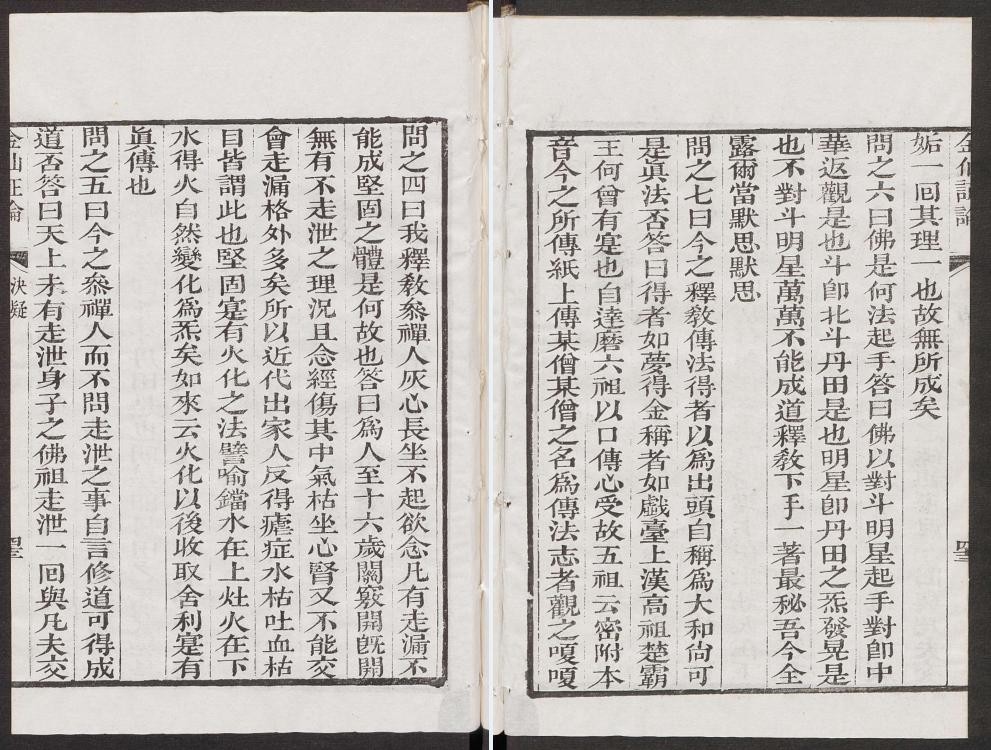 問之四曰我釋教叅禪人灰心長坐不起欲念凡有走漏不
能成堅固之體是何故也答曰爲人至十六歲關竅開旣開
無有不走泄之理況且念經傷其中氣枯坐心腎又不能交
會走漏格外多矣所以近代出家人反得瘧症水枯吐血枯
目皆謂此也堅固寔有火化之法譬喻鐺水在上灶火在下
水得火自然變化爲炁矣如來云火化以後收取舍利寔有
眞傳也
問之五曰今之叅禪人而不問走泄之事自言修道可得成
道否答曰天上未有走泄身子之佛祖走泄一囘與凡夫交
金仙正論
決疑
金仙證論
姤一囘其理一也故無所成矣
問之六曰佛是何法起手答曰佛以對斗明星起手對卽中
華返觀是也斗卽北斗丹田是也明星卽丹田之炁發晃是
也不對斗明星萬萬不能成道釋教下手一著最秘吾今全
露爾當默思默思
問之七曰今之釋教傳法得者以爲出頭自稱爲大和尙可
是眞法否答曰得者如夢得金稱者如戲臺上漢高祖楚霸
王何曾有寔也自達磨六祖以口傳心受故五祖云密附本
音今之所傳紙上傳某僧某僧之名爲傳法志者觀之嗄嗄